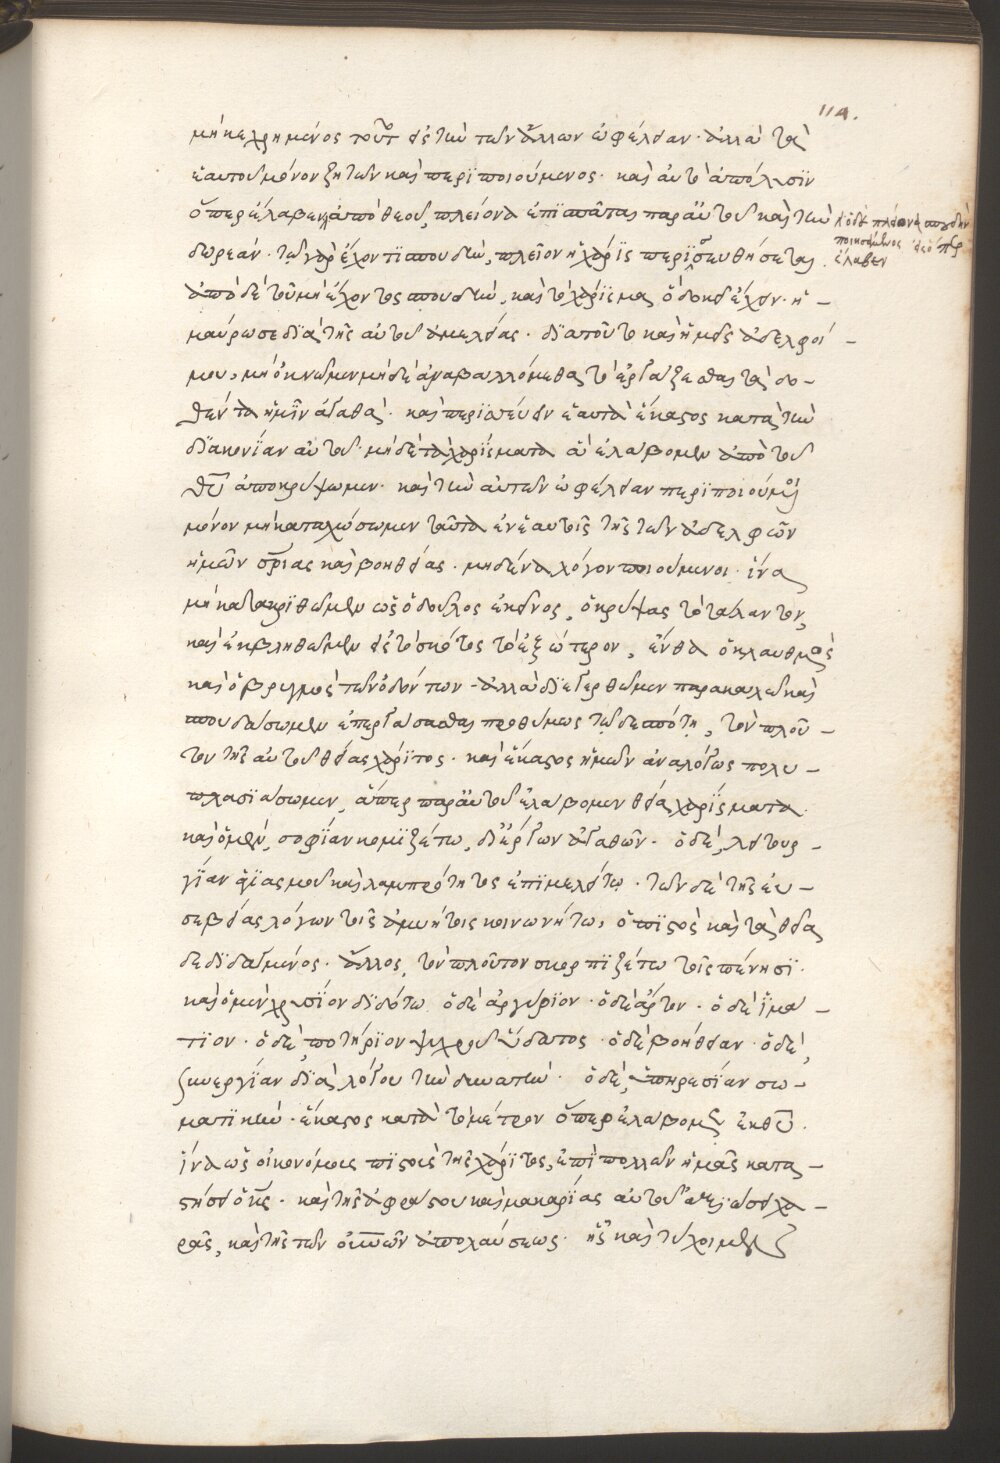 114.
μὴ κεχρημένος τοῦτ εἰς τὴν τῶν ἄλλων ὠφέλειαν· ἀλλὰ τὰ
ἑαυτοῦ μόνον ζητῶν καὶ περιποιούμενος· καὶ αὐτὸ ἀπόλεσιν
ὅπερ ἔλαβεν ἀπὸ θεοῦ, πλείονα ἐπισπᾶται παρ' αὐτοῦ καὶ τὴν
δωρεάν· τῷ γὰρ ἔχοντι σπουδὴν, πλεῖον ἡ χάρις περισσευθήσεται
ἀπὸ δὲ τοῦ μὴ ἔχοντος σπουδὴν, καὶ τὸ χάρισμα ὃ δοκεῖ ἔχειν· ἠ-
μαύρωσε διὰ τῆς αὐτοῦ ἀμελείας· διὰ τοῦτο καὶ ἡμεῖς ἀδελφοί
μου, μὴ ὀκνῶμεν μηδὲ ἀναβαλλόμεθα τὸ ἐργάζεσθαι τὰ δο-
θέντα ἡμῖν ἀγαθά· καὶ περισσεύειν ἑαυτὰ ἕκαστος κατὰ τὴν
διακονίαν αὐτοῦ· μηδὲ τὰ χαρίσματα ἃ ἐλάβομεν ἀπὸ τοῦ
θῦ ἀποκρύψωμεν· καὶ τὴν αὐτῶν ὠφέλειαν περιποιούμενοι
μόνον μὴ καταχώσωμεν ταῦτα ἐν ἑαυτοῖς τῆς τῶν ἀδελφῶν
ἡμῶν σρίας καὶ βοηθείας· μηδένα λόγον ποιούμενοι· ἵνα
μὴ κατακριθῶμεν ὡς ὁ δοῦλος ἐκεῖνος, ὁ κρύψας τὸ τάλαντον,
καὶ ἐκβληθῶμεν εἰς τὸ σκότος τὸ ἐξώτερον, ἔνθα ὁ κλαυθμὸς
καὶ ὁ βρυγμὸς τῶν ὀδόντων - ἀλλὰ διεγερθῶμεν παρακαλῶ καὶ
σπουδάσωμεν ἐπεργάσασθαι προθύμως τῷ δεσπότῃ, τὸν πλοῦ-
τον τῆς αὐτοῦ θείας χάριτος· καὶ ἕκαστος ἡμῶν ἀναλόγως πολυ-
πλασιάσωμεν, ἅπερ παρ' αὐτοῦ ἐλάβομεν θεῖα χαρίσματα.
καὶ ὁ μὲν, σοφίαν κομιζέτω, δι' ἔργων ἀγαθῶν· ὁ δὲ, λειτουρ-
γίαν ἁγιασμοῦ καὶ λαμπρότητος ἐπιμελείτω· τῶν δὲ τῆς εὐ-
σεβείας λόγων τοῖς ἀμυήτοις κοινωνήτω, ὁ πιστὸς καὶ τὰ θεῖα
δεδιδαγμένος· ἄλλος, τὸν πλοῦτον σκορπιζέτω τοῖς πένησι·
καὶ ὁ μὲν χρυσίον διδότω ὁ δὲ ἀργύριον· ὁ δὲ ἄρτον· ὁ δὲ ἱμά-
τιον· ὁ δὲ, ποτήριον ψυχροῦ ὕδατος· ὁ δὲ βοήθειαν· ὁ δὲ,
συνεργίαν διὰ λόγου τὴν δυνατήν· ὁ δὲ, ὑπηρεσίαν σω-
ματικήν· ἕκαστος κατὰ τὸ μέτρον ὅπερ ἐλάβομεν ἐκ θῦ·
ἵνα ὡς οἰκονόμοις πιστοῖς τῆς χάριτος, ἐπὶ πολλῶν ἡμᾶς κατα-
στήσει ὁ κς· καὶ τῆς ἀφράστου καὶ μακαρίας αὐτοῦ ἀξιώσει χα-
ρᾶς, καὶ τῆς τῶν αἰωνίων ἀπολαύσεως· ἧς καὶ τύχοιμεν
ὁ δὲ πλείονα σπουδὴν
ποιησάμενος εἰς ὅπερ
ἔλαβεν